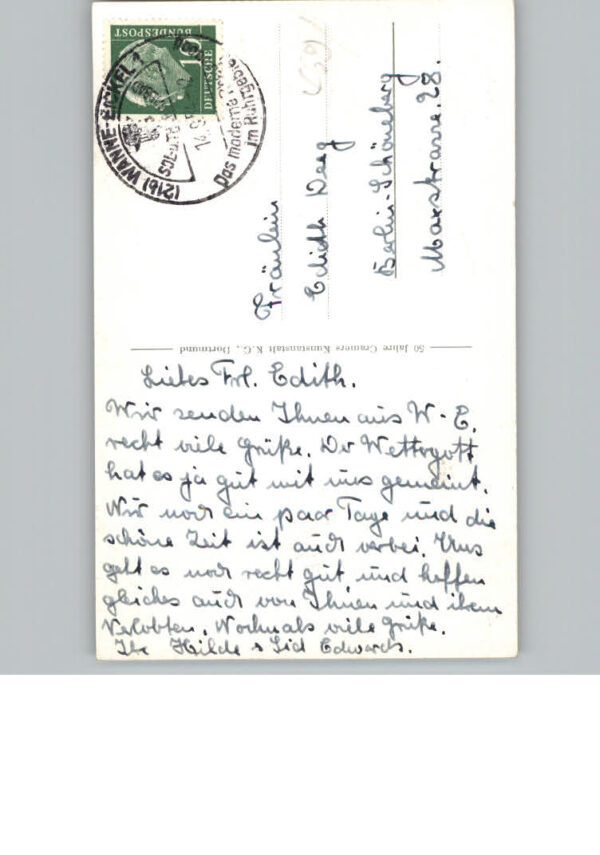 DEUTSCHE
BUNDESPOST
10
(21b) WANNE-EICKEL 1
Das moderne
im Ruhrgebiet
Fräulein
Edith Deeg
Berlin-Schöneberg
Maxstrasse. 28.
50 Jahre Cramers Kunstanstalt K.G., Dortmund
Liebes Frl. Edith.
Wir senden Ihnen aus W-E.
recht viele Grüße. Der Wettergott
hat es ja gut mit uns gemeint.
Nur noch ein paar Tage und die
schöne Zeit ist auch vorbei. Uns
geht es noch recht gut und hoffen
gleiches auch von Ihnen und ihrem
Verlobten. Nochmals viele Grüße.
Ihr Hilde & Sid Edwards.